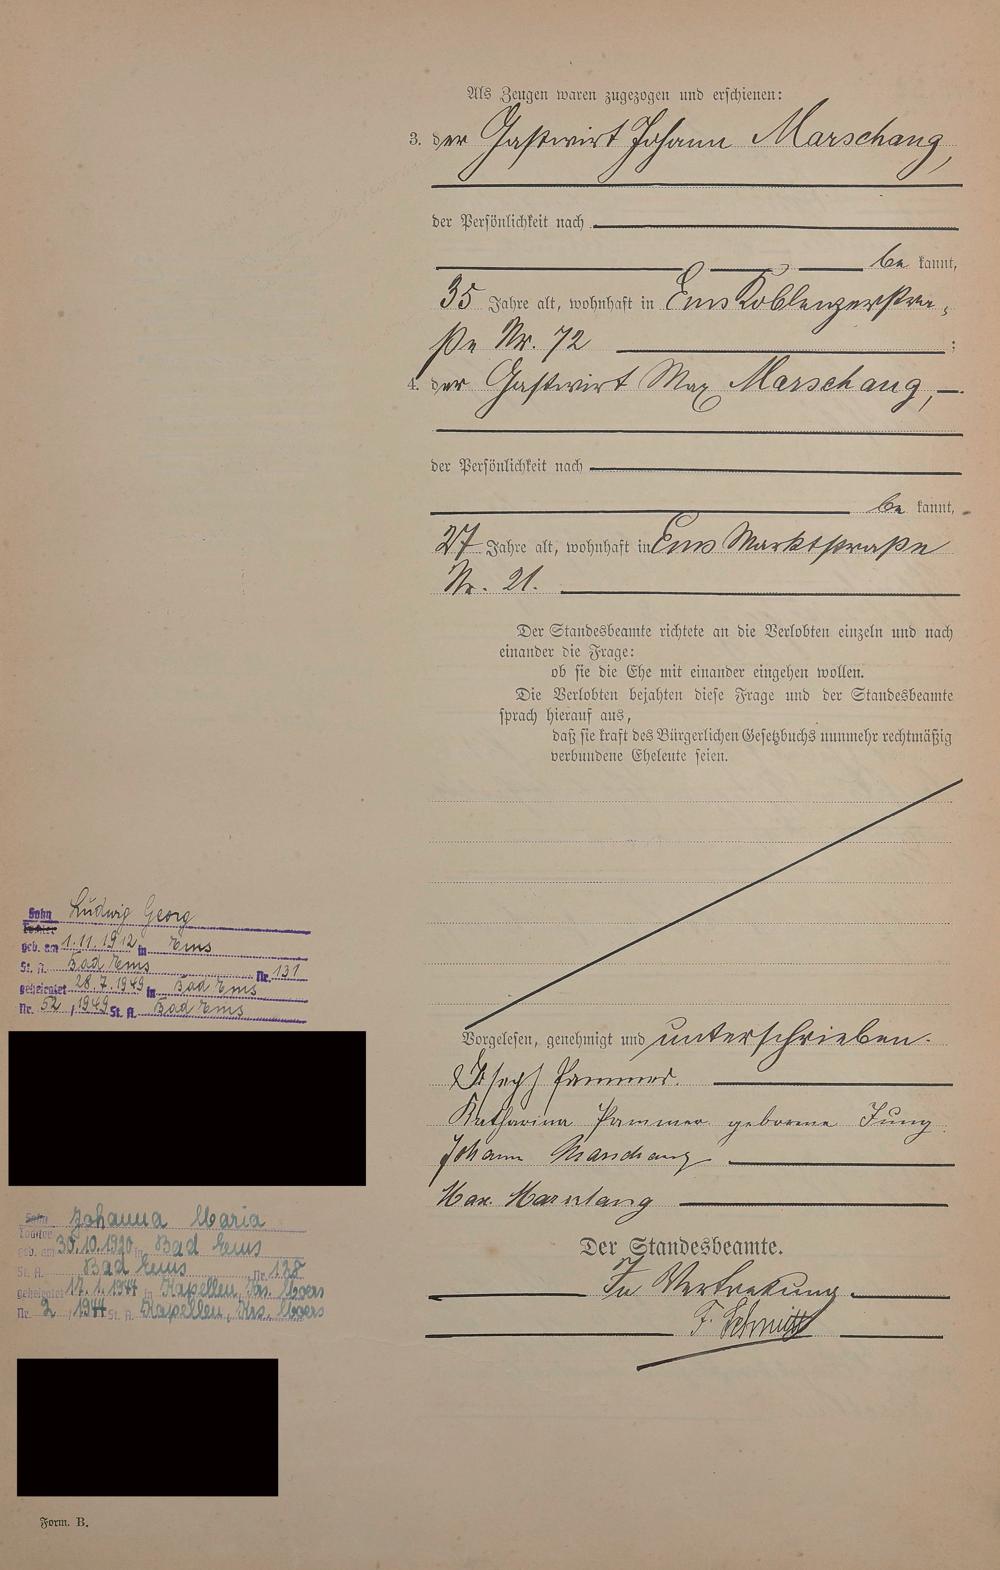 Als Zeugen waren zugezogen und erschienen:
3. der Gastwirt Johann Marschang,
der Persönlichkeit nach
be kannt,
35 Jahre alt, wohnhaft in Ems Koblenzerstra-
ße Nr. 72 ;
4. der Gastwirt Max Marschang,
der Persönlichkeit nach
be kannt,
27 Jahre alt, wohnhaft in Ems Marktstraße
Nr. 21.
Der Standesbeamte richtete an die Verlobten einzeln und nach
einander die Frage:
ob sie die Ehe mit einander eingehen wollen.
Die Verlobten bejahten diese Frage und der Standesbeamte
sprach hierauf aus,
daß sie kraft des Bürgerlichen Gesetzbuchs nunmehr rechtmäßig
verbundene Eheleute seien.
Vorgelesen, genehmigt und unterschrieben.
Joseph Pammer.
Katharina Pammer geborene Jung.
Johann Marschang
Max Marschang
Der Standesbeamte.
In Vertretung.
F. Schmitt
Sohn Ludwig Georg
Tochter
geb. am 1.11.1912 in Ems
St. A. Bad Ems Nr. 131
geheiratet 28.7.1949 in Bad Ems
Nr. 52 / 1949 St. A. Bad Ems
Sohn Johanna Maria
Tochter
geb. am 30.10.1920 in Bad Ems
St. A. Bad Ems Nr. 128
geheiratet 17.1.1944 in Kapellen, Krs. Moers
Nr. 2 / 1944 St. A. Kapellen, Krs. Moers
Form. B.